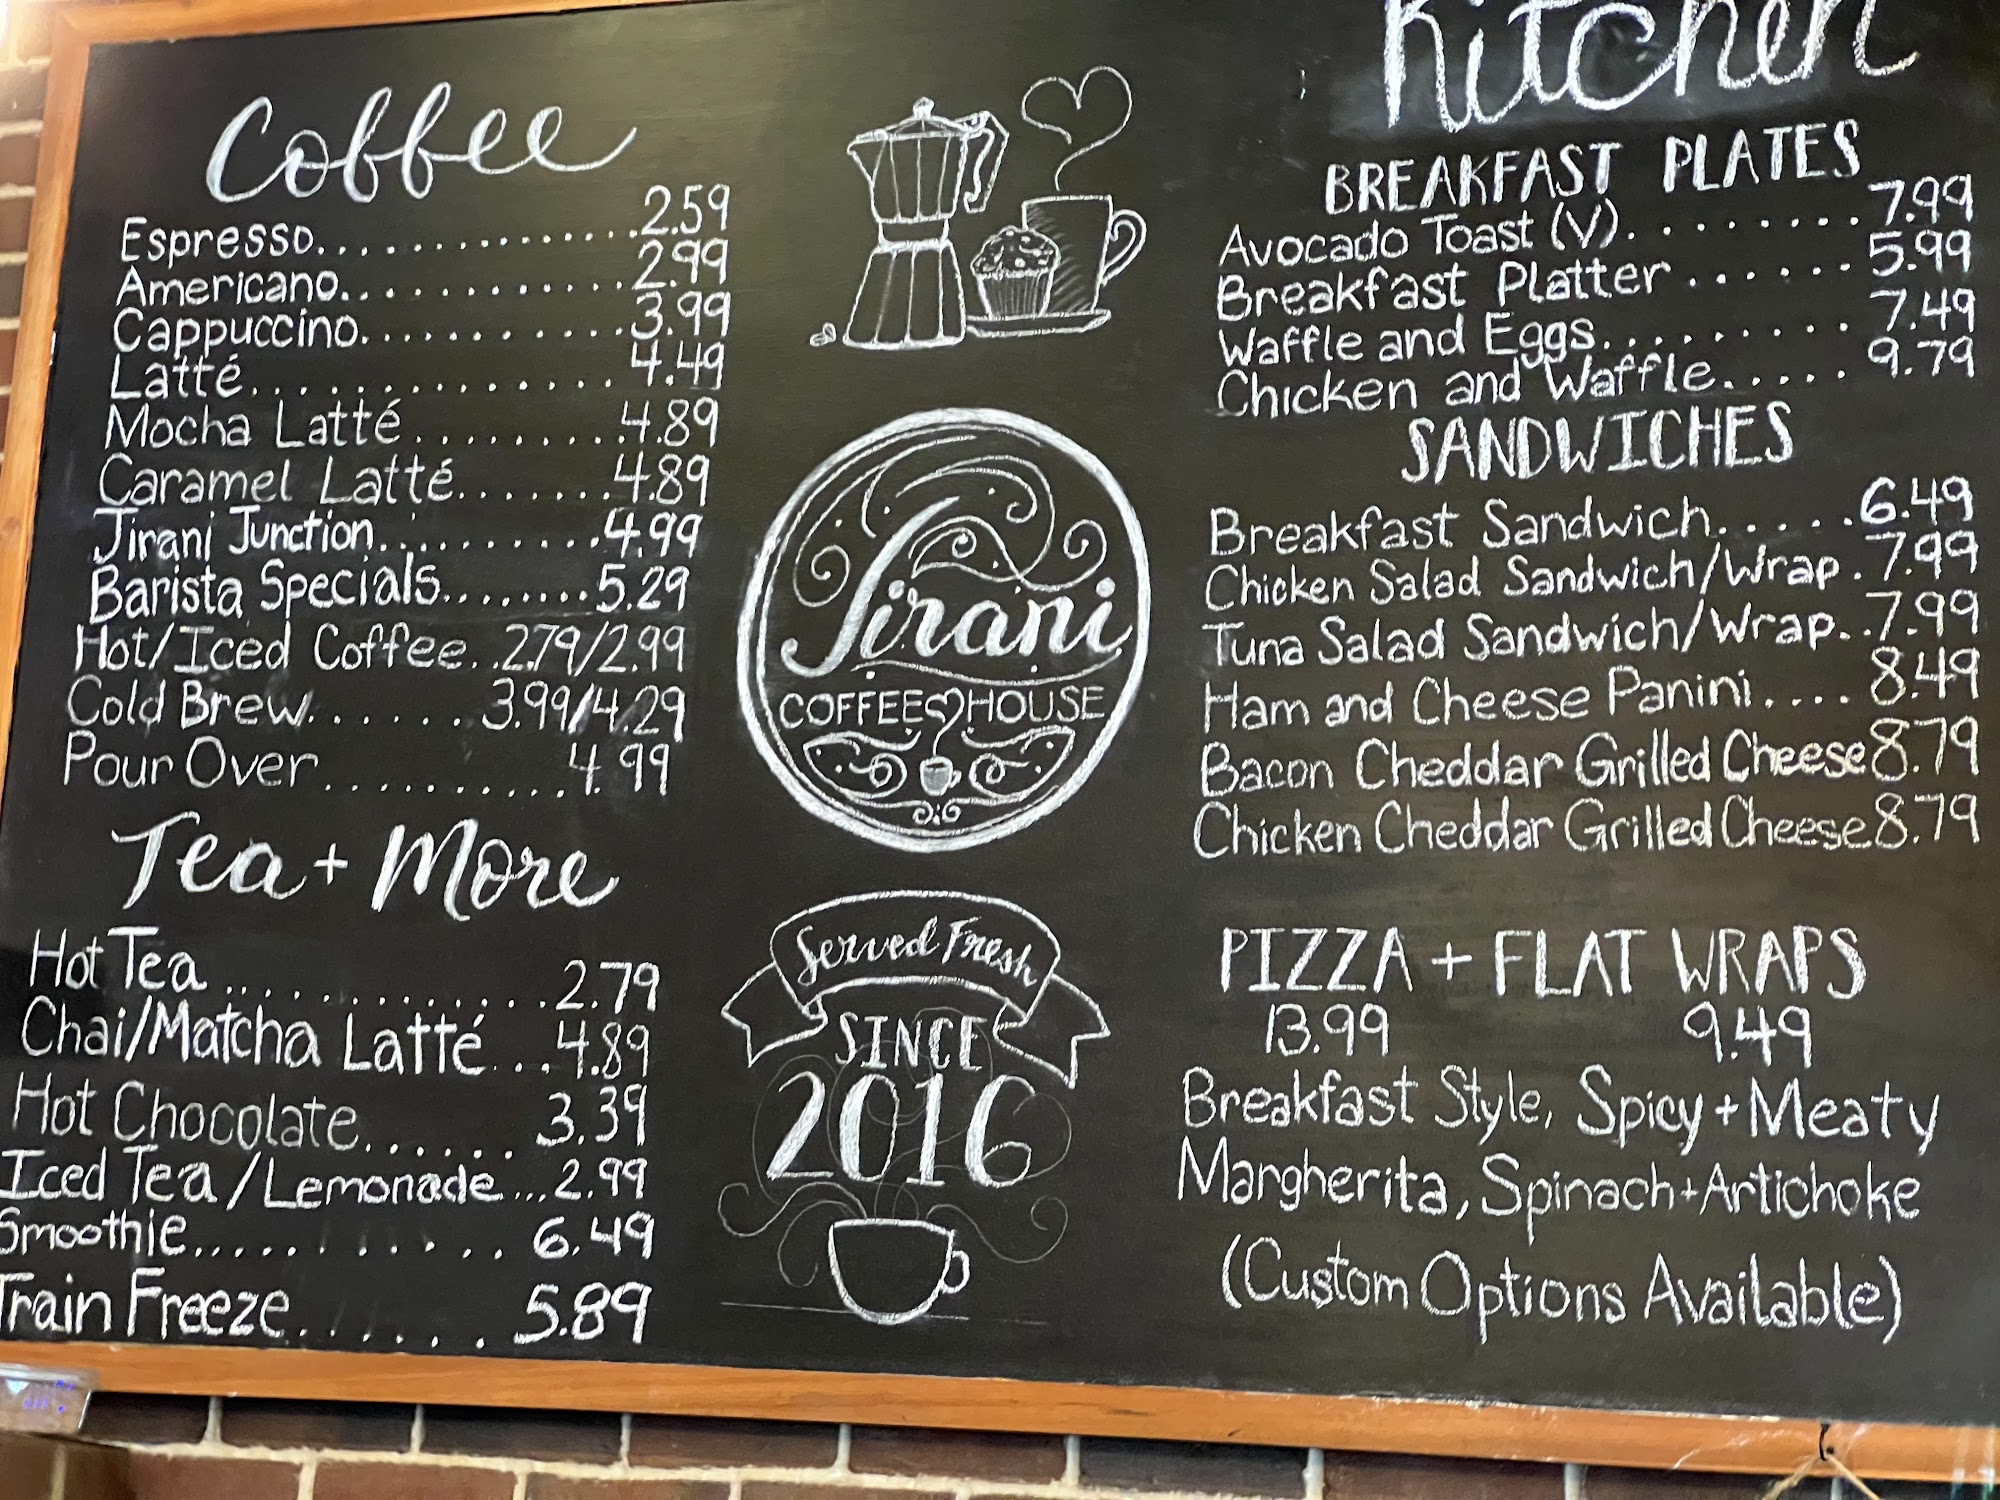 Coffee
Espresso..............2.59
Americano.............2.99
Cappuccino............3.99
Latté...............4.49
Mocha Latté.........4.89
Caramel Latté.......4.89
Jirani Junction...........4.99
Barista Specials........5.29
Hot/Iced Coffee..2.79/2.99
Cold Brew....... 3.99/4.29
Pour Over..........4.99
Tea + More
Hot Tea..............2.79
Chai/Matcha Latté...4.89
Hot Chocolate...... 3.39
Iced Tea/Lemonade...2.99
Smoothie........... 6.49
Train Freeze....... 5.89
Jirani
COFFEE HOUSE
Served Fresh
SINCE
2016
Kitchen
BREAKFAST PLATES
Avocado Toast (V).........7.99
Breakfast Platter......5.99
Waffle and Eggs.........7.49
Chicken and Waffle.....9.79
SANDWICHES
Breakfast Sandwich.....6.49
Chicken Salad Sandwich/Wrap.7.99
Tuna Salad Sandwich/Wrap..7.99
Ham and Cheese Panini....8.49
Bacon Cheddar Grilled Cheese 8.79
Chicken Cheddar Grilled Cheese 8.79
PIZZA + FLAT WRAPS
13.99 9.49
Breakfast Style, Spicy + Meaty
Margherita, Spinach + Artichoke
(Custom Options Available)